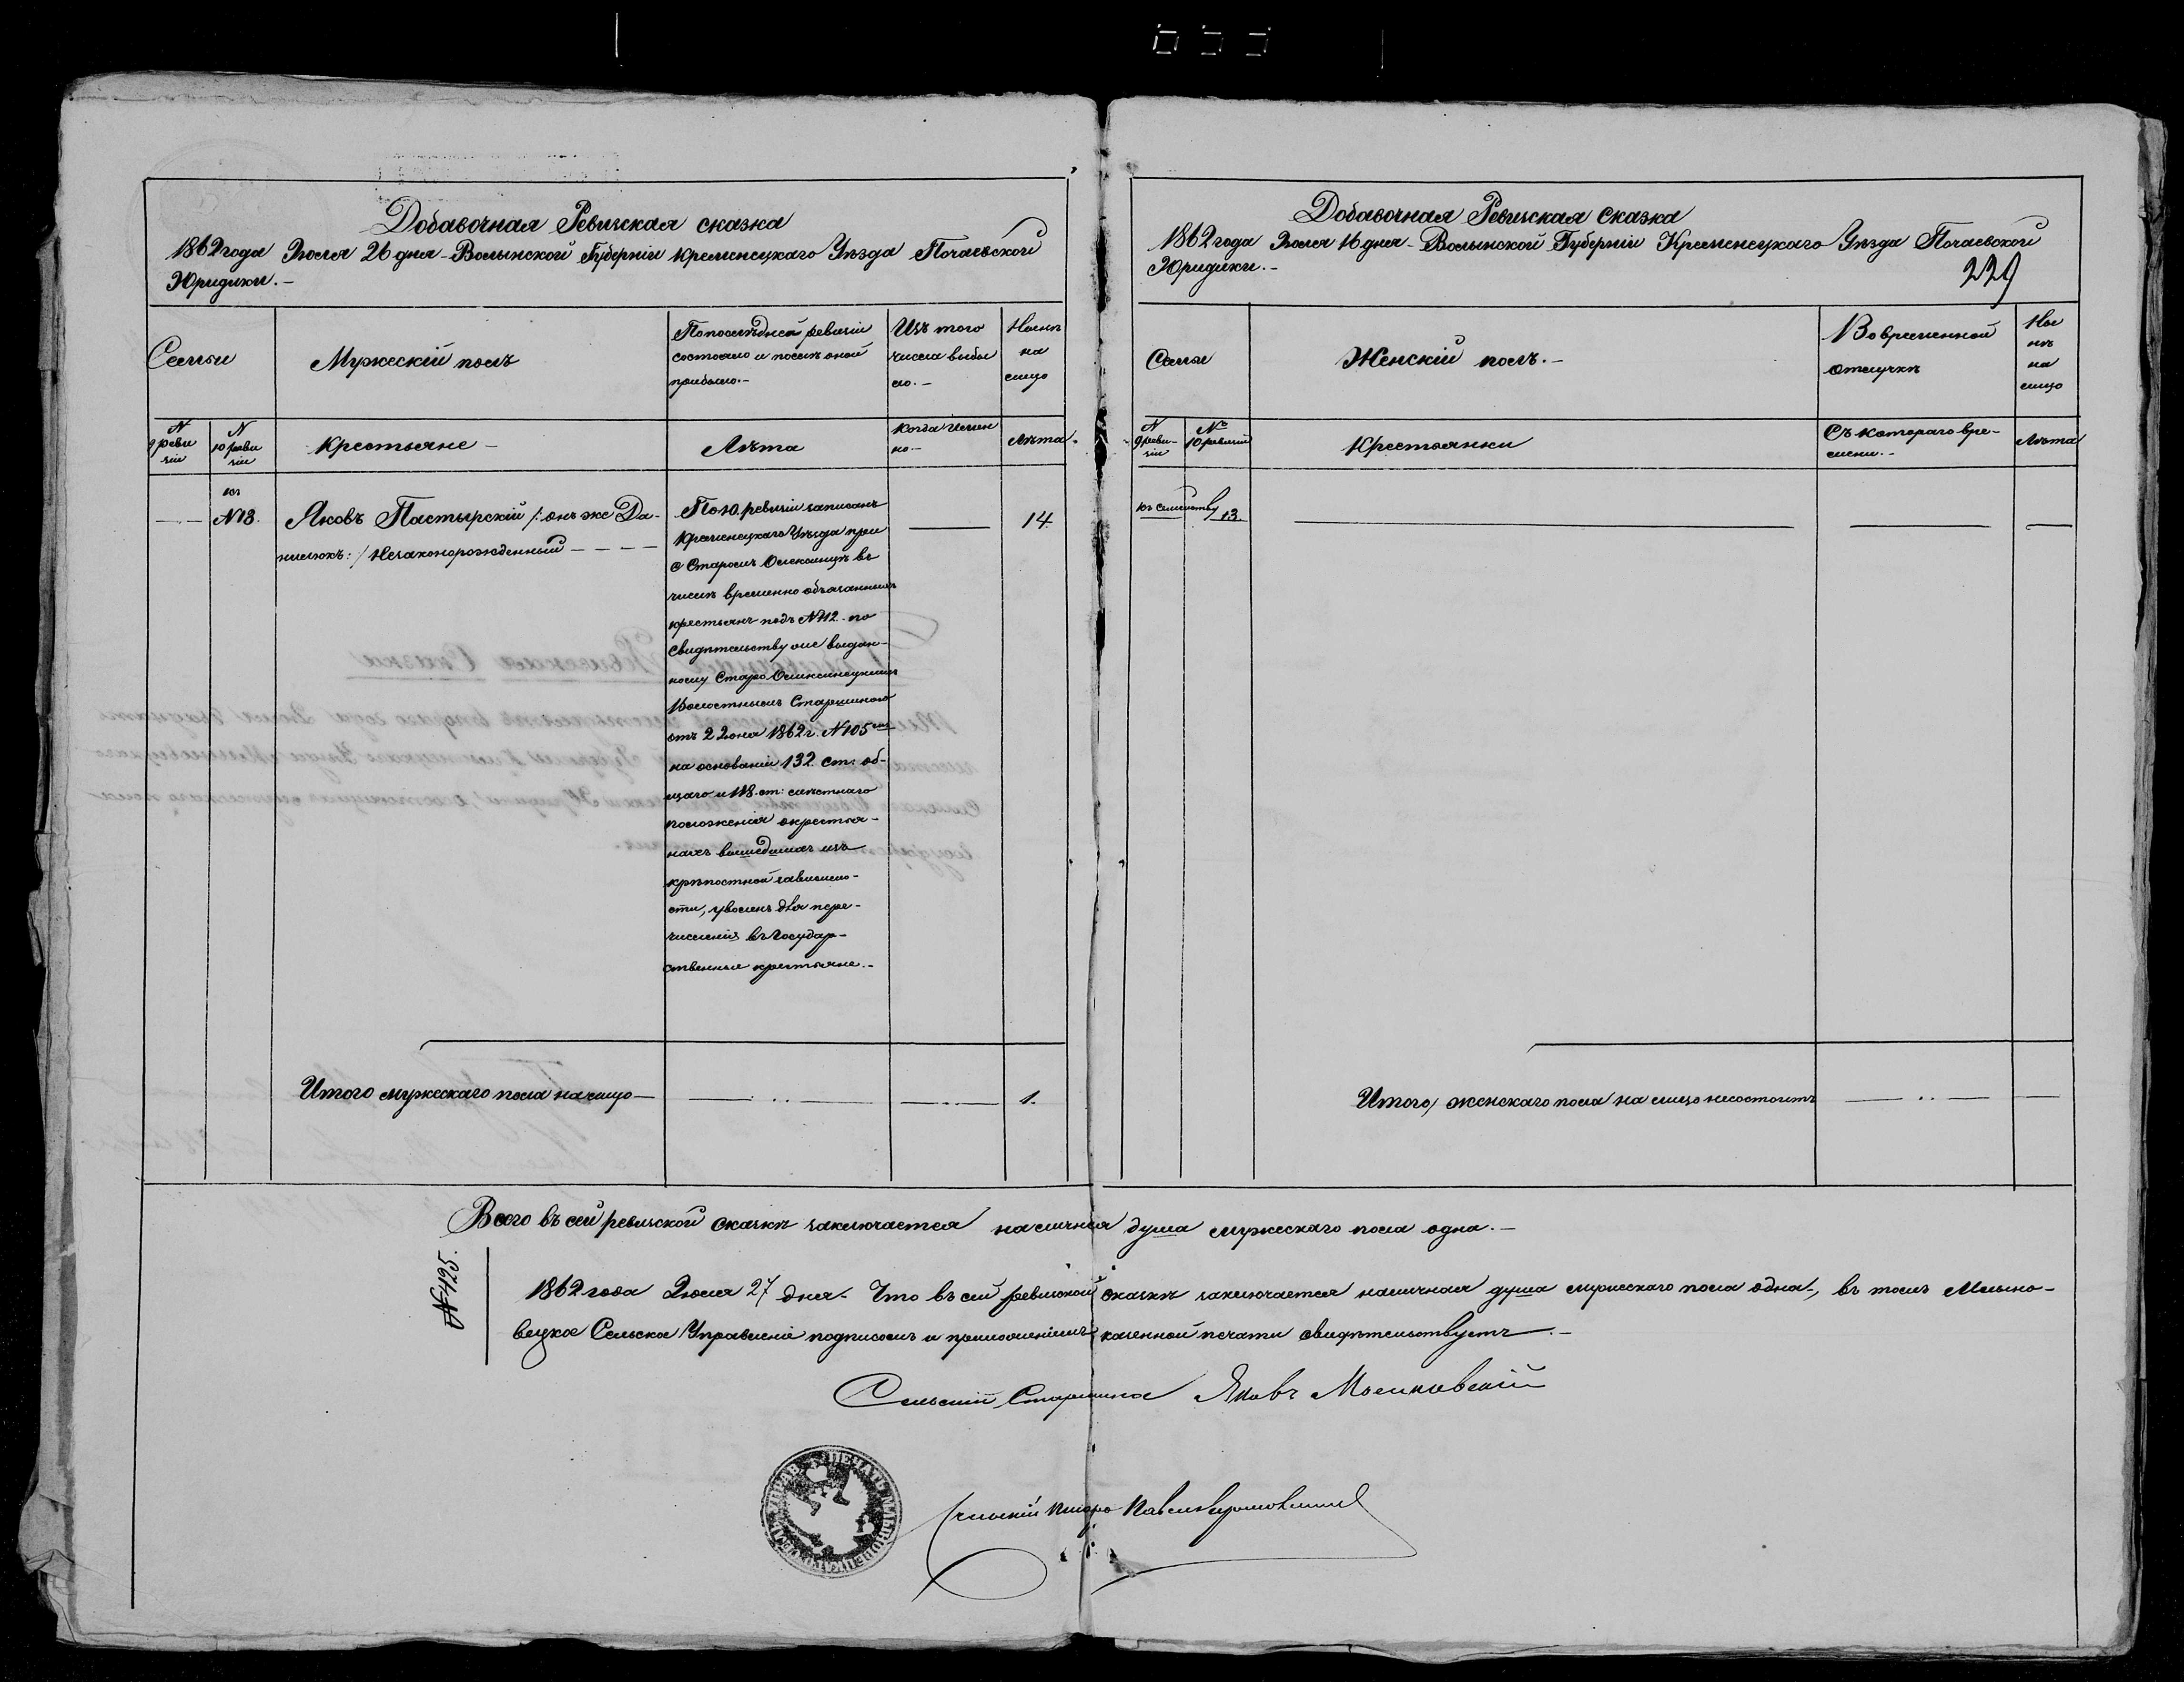 Добавочная Ревизская сказка
1862 года Июля 26 дня - Волынской Губерніи Кременецкаго Уѣзда Почаевской
Юридики. -
Семьи
Мужескій полъ
По послѣдней ревизіи
состояло и послѣ оной
прибыло. -
Изъ того
числа выбы
ло. -
Нынѣ
на
лицо
N
9 реви
зіи
N
10 реви
зіи
Крестьяне -
Лѣта
Когда имен
но -
Лѣта
къ
N13.
Яковъ Пастырскій /: онъ же Да-
нилюкъ :/ Незаконорожденный - - - -
По 10. ревизіи записанъ
Кременецкаго Уѣзда при
с Старомъ Олексинцѣ въ
числѣ временно обязанныхъ
крестьянъ подъ N12. по
свидѣтельству ему выдан-
ному Старо Олексинецкимъ
Волостнымъ Старшиною
отъ 2 Іюня 1862 г. N105
на основаніи 132. ст: об-
щаго и 118. ст: мѣстнаго
положенія о крестья-
нахъ вышедшихъ изъ
крѣпостной зависимо-
сти, уволенъ для пере-
численія въ Государ-
ственные крестьяне. -
14.
Итого мужескаго пола на лицо -
1.
Добавочная Ревизская Сказка
1862 года Іюля 16 дня - Волынской Губерніи Кременецкаго Уѣзда Почаевской
Юридики. -
229
Семьи
Женскій полъ. -
Во временной
отлучкѣ
Ны
нѣ
на
лицо
N
9 реви-
зіи
№
10 ревизіи
Крестьянки
Съ котораго вре-
мени. -
Лѣта
къ семейству 13.
Итого, женскаго пола на лицо несостоитъ
Всего въ сей ревизской сказкѣ заключается наличная душа мужескаго пола одна. -
N 425.
1862 года Іюля 27 дня. Что въ сей ревизской сказкѣ заключается наличная душа мужескаго пола одна, въ томъ Млыно-
вецкое Сельское Управленіе подписомъ и приложеніемъ казенной печати свидѣтельствуетъ. -
Сельскій Старшина Яковъ
Сельскій Писарь